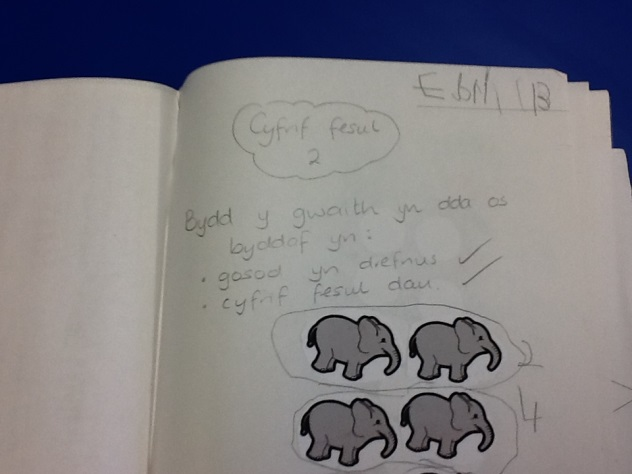 Cyfrif fesul
2
Bydd y gwaith yn dda os
byddaf yn:
• gosod yn drefnus ✓
• cyfrif fesul dau. ✓
2
4